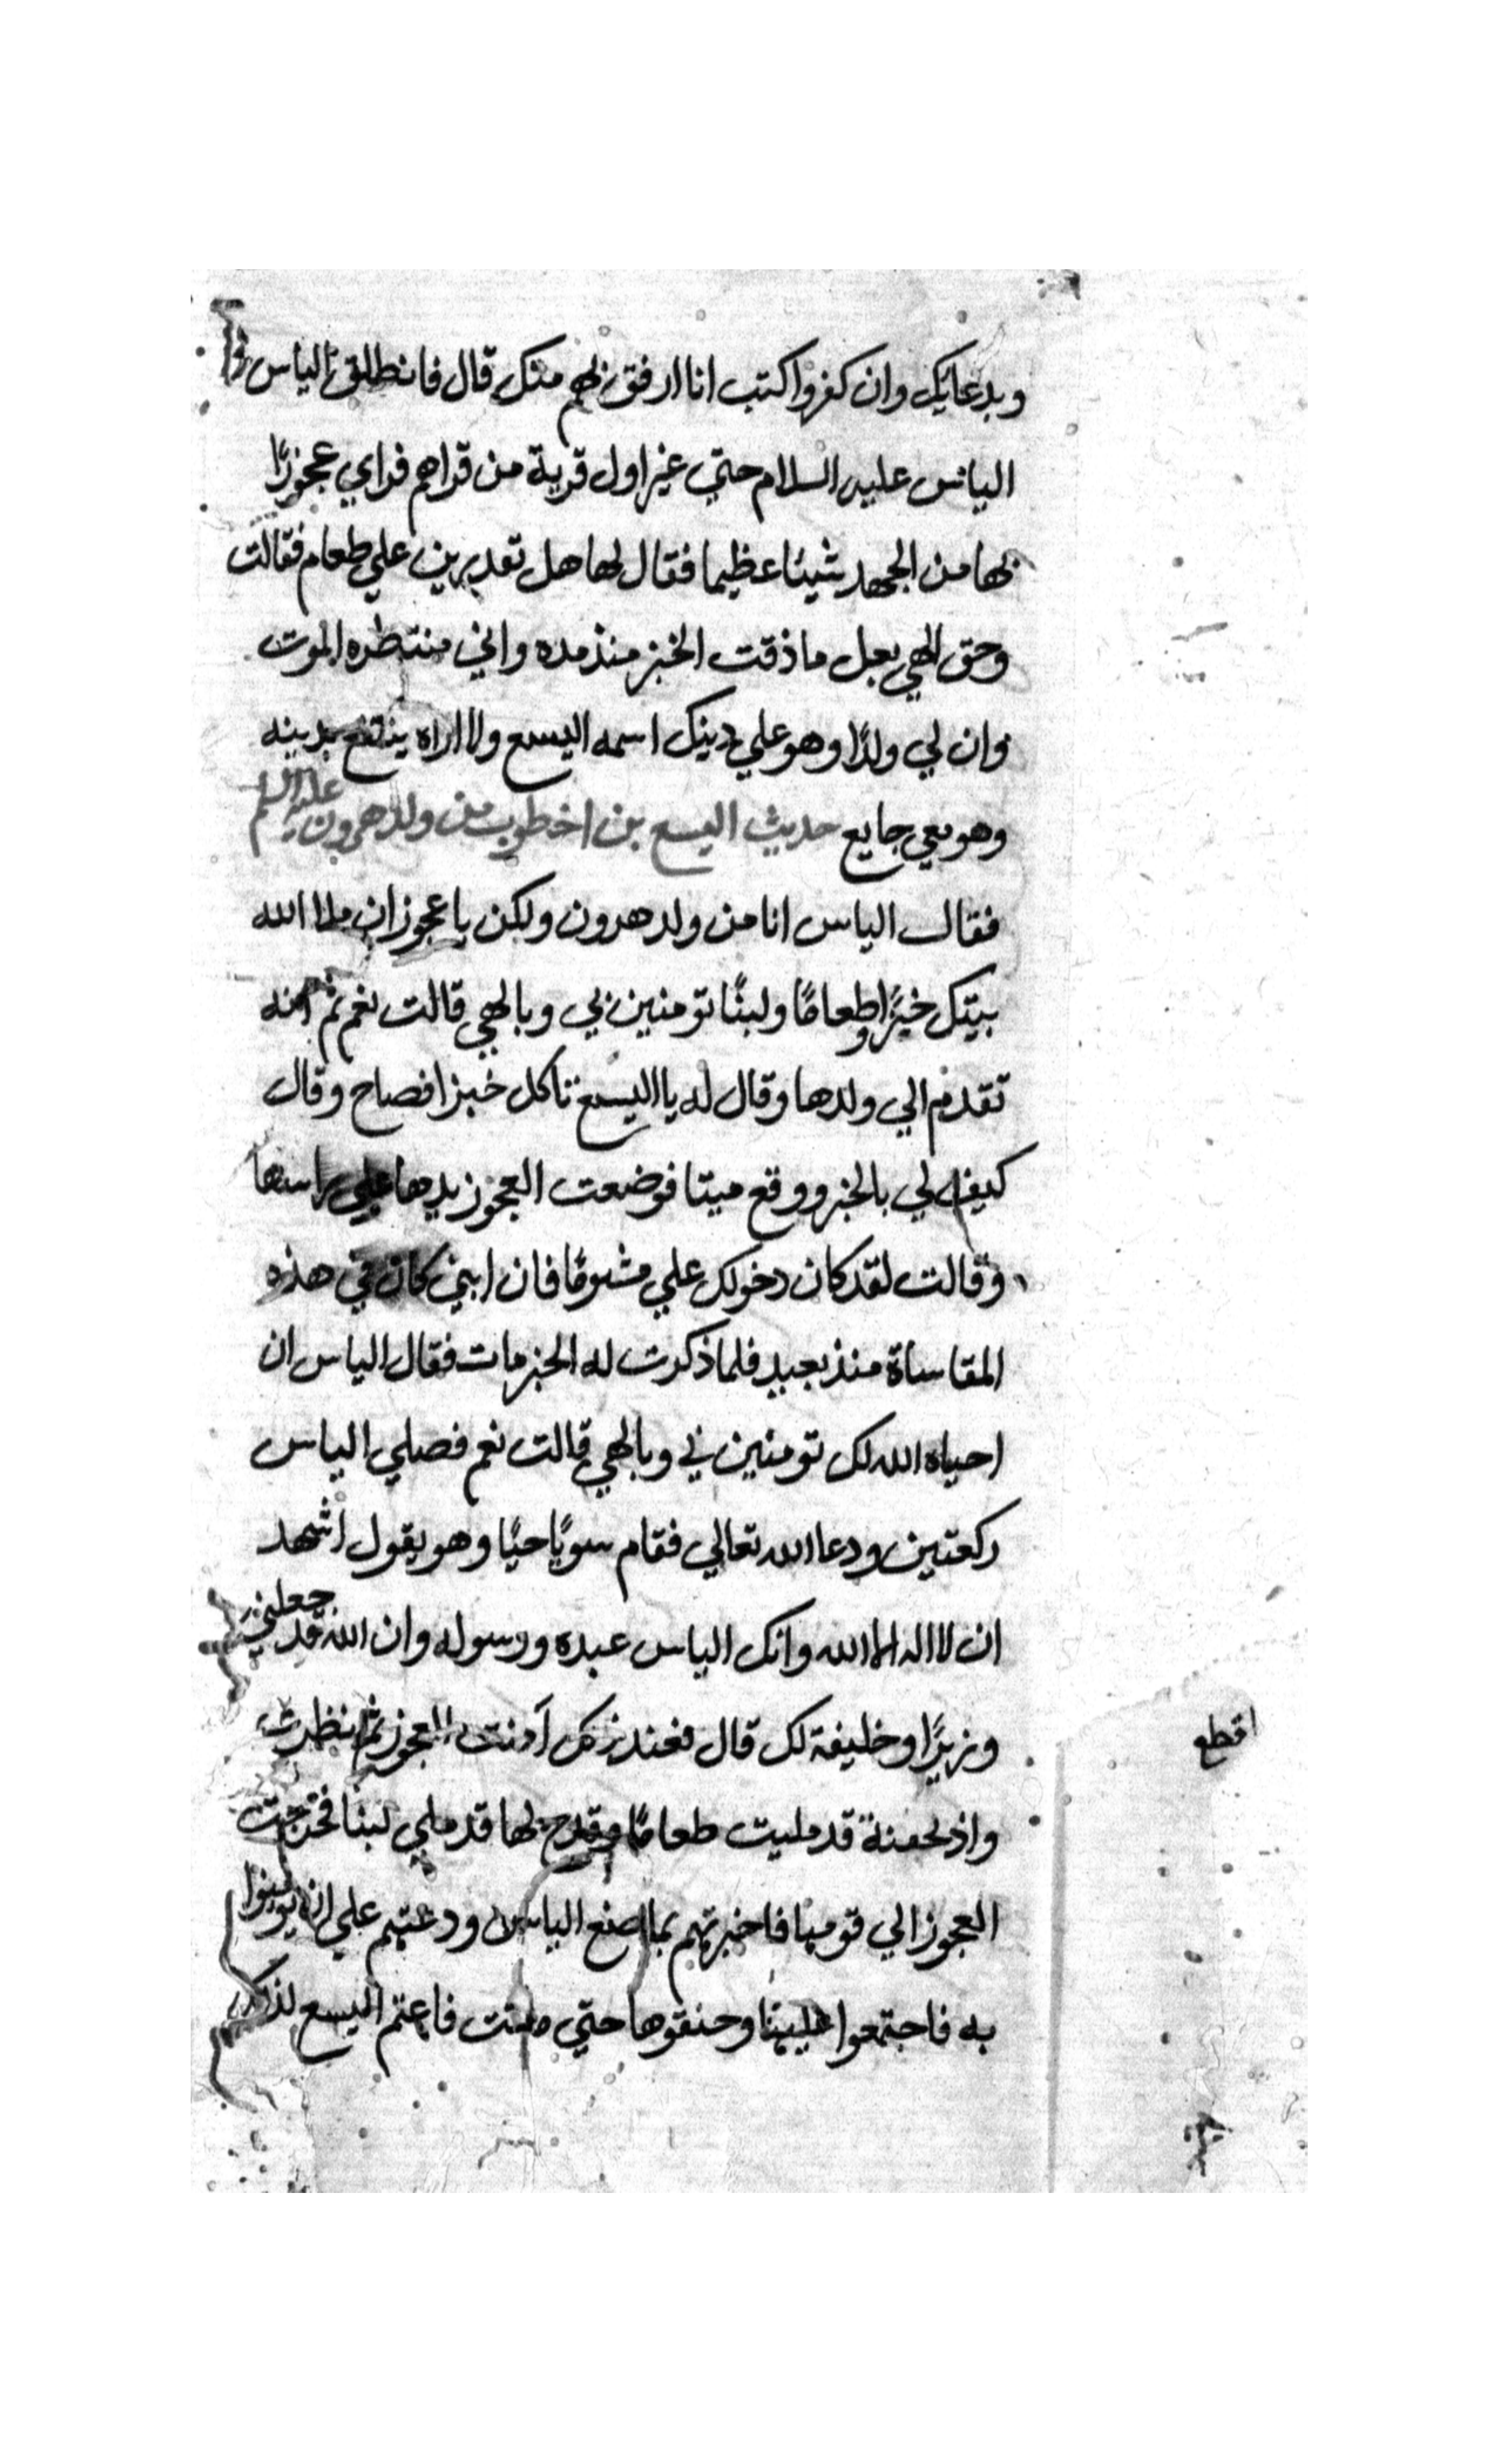 وبدعايك وان كفروا كتب انا ارفق بهم منك قال فانطلق الياس
الياس عليه السلام حتي عبر اول قرية من قراهم فراي عجوزًا
بها من الجهد شيئا عظيما فقال لها هل تقديرين علي طعام فقالت
وحق الهي بعل ما ذقت الخبز منذ مده واني منتظره الموت
وان لي ولدًا وهو علي دينك اسمه اليسع ولا اراه ينتفع بدينه
وهو معي جايع حديث اليسع بن اخطوب من ولد هرون عليه السلم
فقال الياس انا من ولد هرون ولكن يا عجوز ان ملا الله
بيتك خبزًا وطعامًا ولبنًا تومنين بي وبالهي قالت نعم ثم انه
تقدم الي ولدها وقال له يا اليسع تاكل خبزا فصاح وقال
كيف لي بالخبز ووقع ميتا فوضعت العجوز يدها علي راسها
وقالت لقد كان دخولك علي مشومًا فان ابني كان في هذه
المقاساة منذ بعيد فلما ذكرت له الخبز مات فقال الياس ان
احياه الله لك تومنين بي وبالهي قالت نعم فصلي الياس
ركعتين ودعا الله تعالي فقام سويًا حيًا وهو يقول اشهد
ان لا اله الا الله وانك الياس عبده ورسوله وان الله قد جعلني
وزيرًا وخليفة لك قال فعند ذلك آمنت العجوز ثم نظرت
واذ لحفنة قد مليت طعامًا وقدح لها قد ملي لبنا فخرجت
العجوز الي قومها فاخبرتهم بما صنع الياس ودعتهم علي ان يومنوا
به فاجتمعوا عليها وخنقوها حتي ماتت فاغتم اليسع لذلك
اقطع